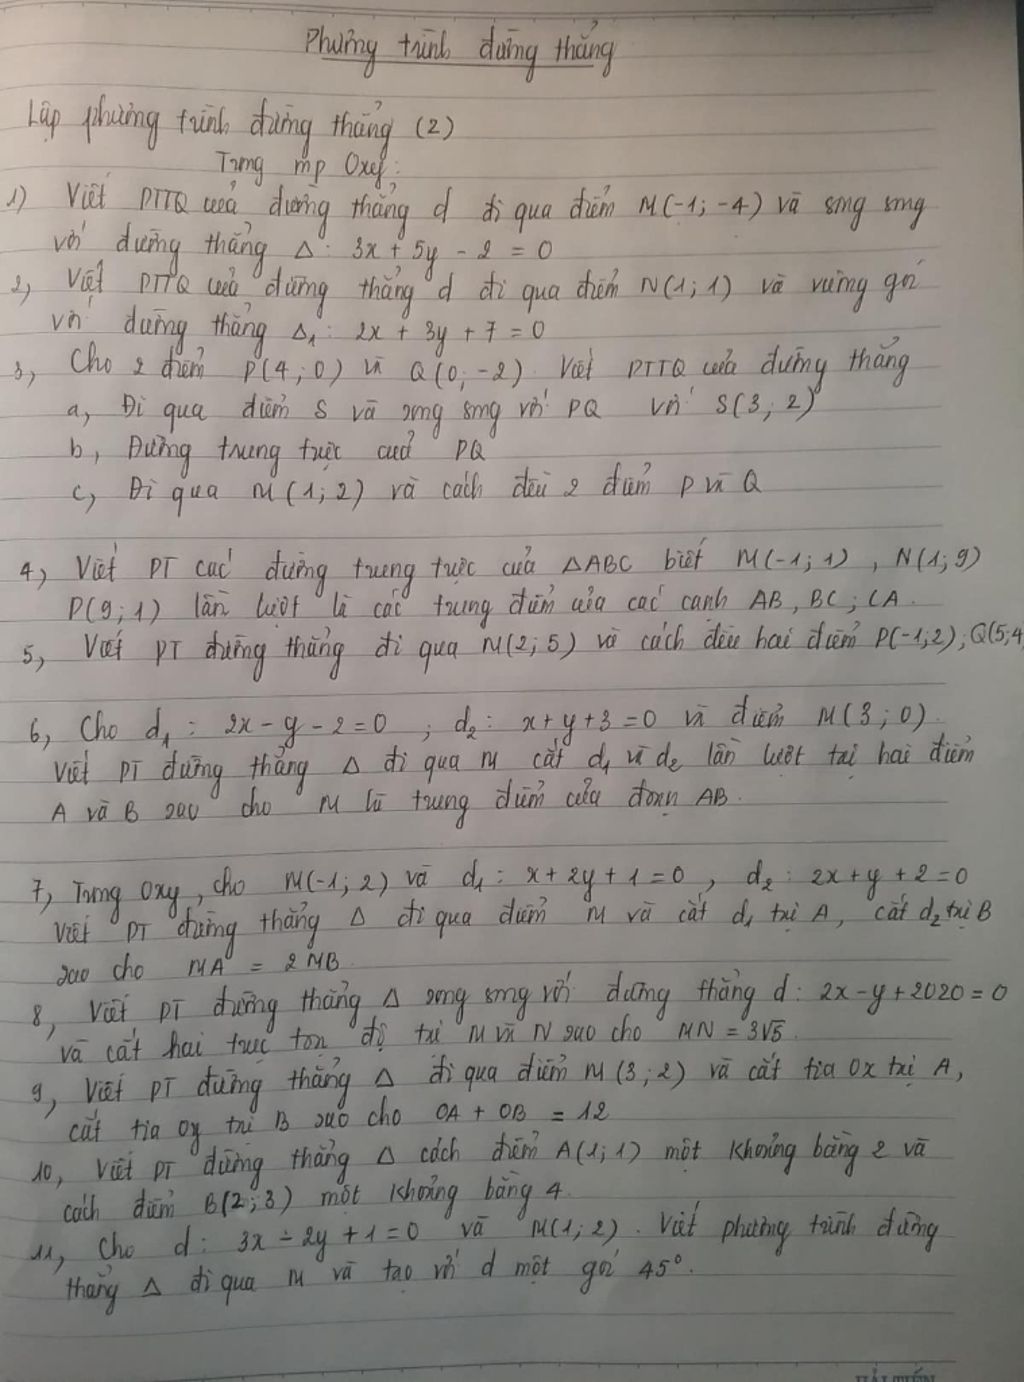 Phương trình đường thẳng
Lập phương trình đường thẳng (2)
Trong mp Oxy:
1) Viết PTTQ của đường thẳng d đi qua điểm M(-1; -4) và song song
với đường thẳng Δ: 3x + 5y - 2 = 0
2, Viết PTTQ của đường thẳng d đi qua điểm N(1; 1) và vuông góc
với đường thẳng Δ₁: 2x + 3y + 7 = 0
3, Cho 2 điểm P(4; 0) và Q(0; -2). Viết PTTQ của đường thẳng
a, Đi qua điểm S và song song với PQ với S(3; 2)
b, Đường trung trực của PQ
c, Đi qua M(1; 2) và cách đều 2 điểm P và Q
4, Viết PT các đường trung trực của ΔABC biết M(-1; 1), N(1; 9)
P(9; 1) lần lượt là các trung điểm của các cạnh AB, BC; CA.
5, Viết PT đường thẳng đi qua M(2; 5) và cách đều hai điểm P(-1; 2); Q(5; 4
6, Cho d₁: 2x - y - 2 = 0 ; d₂: x + y + 3 = 0 và điểm M(3; 0).
Viết PT đường thẳng Δ đi qua M cắt d₁ và d₂ lần lượt tại hai điểm
A và B sao cho M là trung điểm của đoạn AB.
7, Trong Oxy, cho M(-1; 2) và d₁: x + 2y + 1 = 0, d₂: 2x + y + 2 = 0
Viết PT đường thẳng Δ đi qua điểm M và cắt d₁ tại A, cắt d₂ tại B
sao cho MA = 2MB.
8, Viết PT đường thẳng Δ song song với đường thẳng d: 2x - y + 2020 = 0
và cắt hai trục tọa độ tại M và N sao cho MN = 3√5.
9, Viết PT đường thẳng Δ đi qua điểm M(3; 2) và cắt tia Ox tại A,
cắt tia Oy tại B sao cho OA + OB = 12
10, Viết PT đường thẳng Δ cách điểm A(1; 1) một khoảng bằng 2 và
cách điểm B(2; 3) một khoảng bằng 4.
11, Cho d: 3x - 2y + 1 = 0 và M(1; 2). Viết phương trình đường
thẳng Δ đi qua M và tạo với d một góc 45°.
HẢI TIẾN